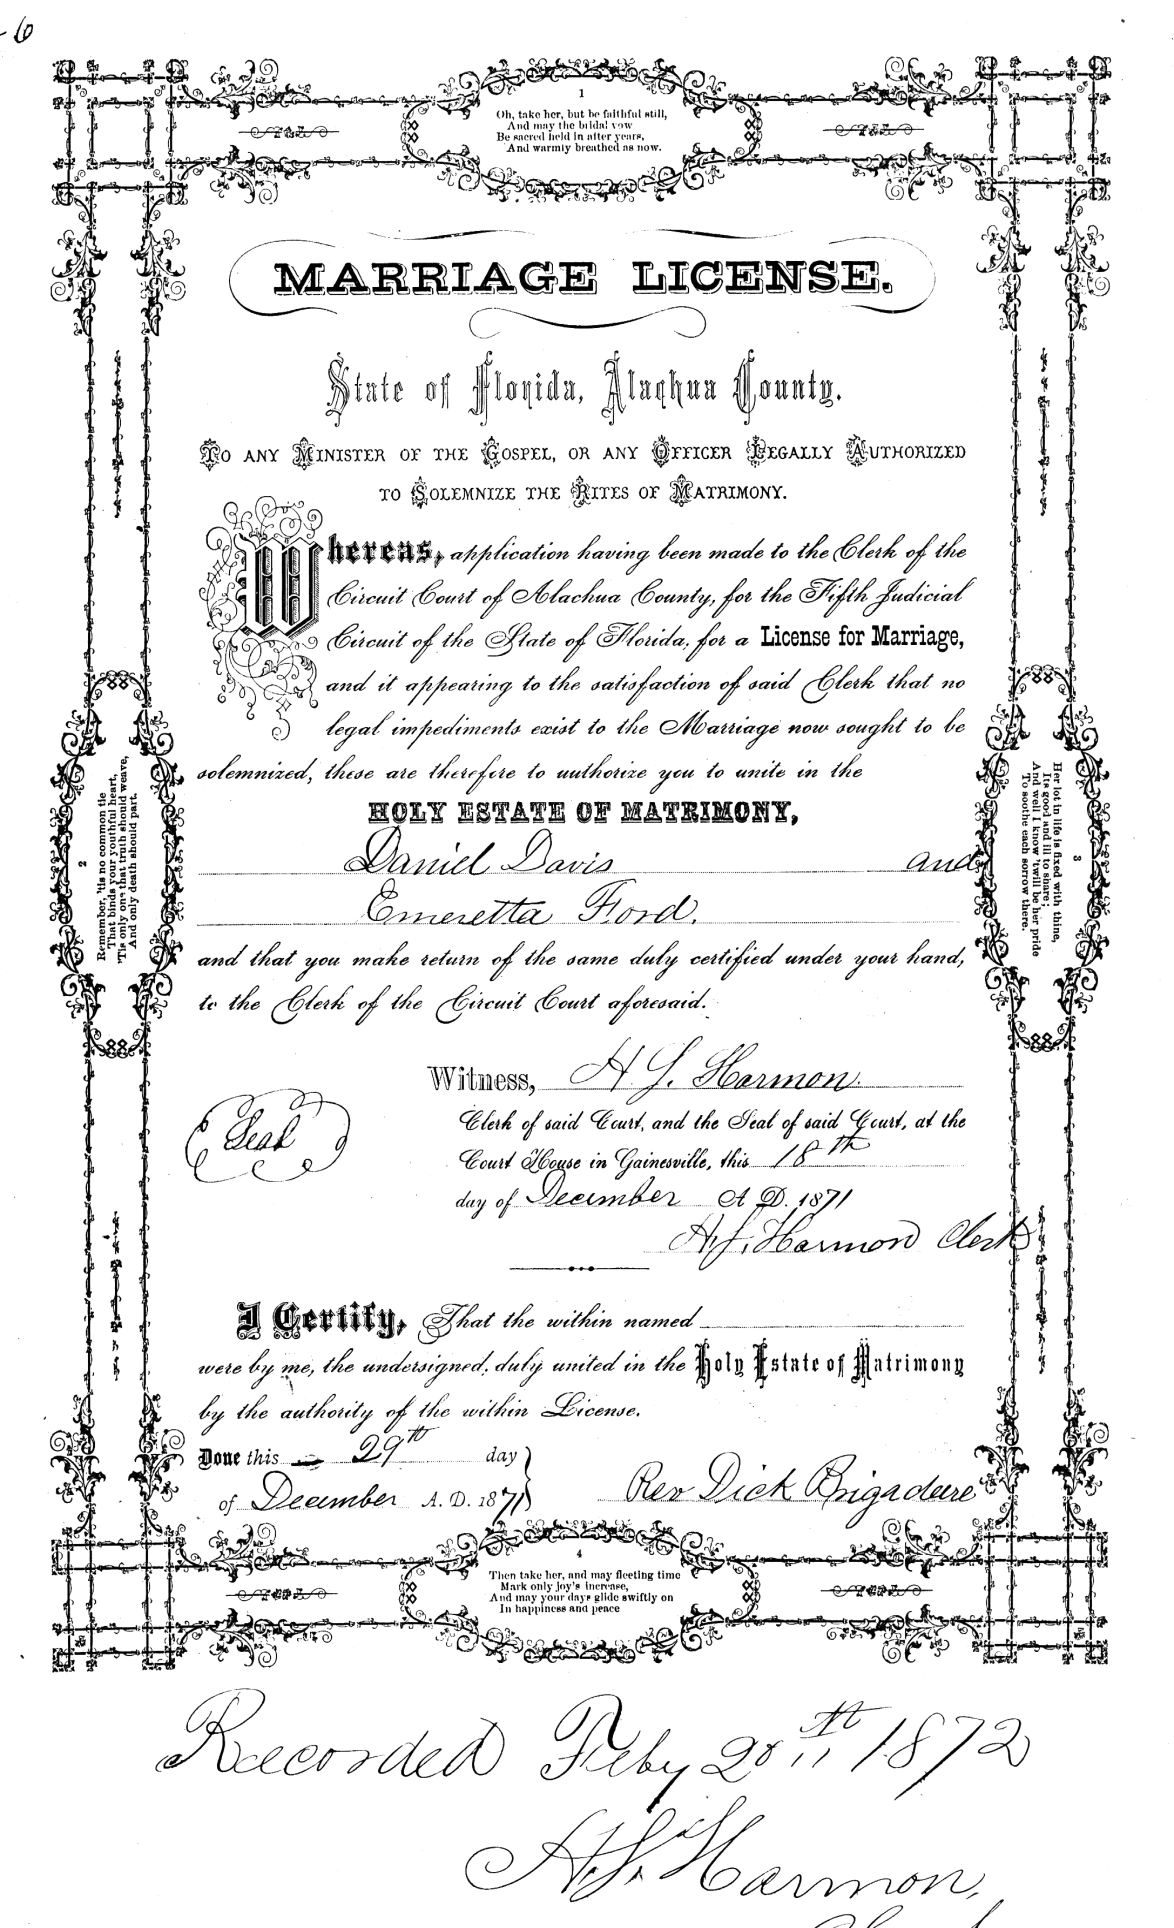 -6
1
Oh, take her, but be faithful still,
And may the bridal vow
Be sacred held in after years,
And warmly breathed as now.
MARRIAGE LICENSE.
State of Florida, Alachua County.
TO ANY MINISTER OF THE GOSPEL, OR ANY OFFICER LEGALLY AUTHORIZED
TO SOLEMNIZE THE RITES OF MATRIMONY.
Whereas, application having been made to the Clerk of the
Circuit Court of Alachua County, for the Fifth Judicial
Circuit of the State of Florida, for a License for Marriage,
and it appearing to the satisfaction of said Clerk that no
legal impediments exist to the Marriage now sought to be
solemnized, these are therefore to authorize you to unite in the
HOLY ESTATE OF MATRIMONY,
Daniel Davis and
Emeretta Ford.
and that you make return of the same duly certified under your hand,
to the Clerk of the Circuit Court aforesaid.
2
Remember, 'tis no common tie
That binds your youthful heart,
'Tis only one that truth should weave,
And only death should part.
3
Her lot in life is fixed with thine,
Its good and ill to share;
And well I know 'twill be her pride
To soothe each sorrow there.
Witness, H S. Harmon.
Seal
Clerk of said Court, and the Seal of said Court, at the
Court House in Gainesville, this 18th
day of December A. D. 1871
H. S. Harmon Clerk
I Certify, That the within named
were by me, the undersigned, duly united in the Holy Estate of Matrimony
by the authority of the within License.
Done this 29th day
of December A. D. 1871
Rev Dick Brigadeere
4
Then take her, and may fleeting time
Mark only joy's increase,
And may your days glide swiftly on
In happiness and peace
Recorded Feby 20th 1872
H. S. Harmon,